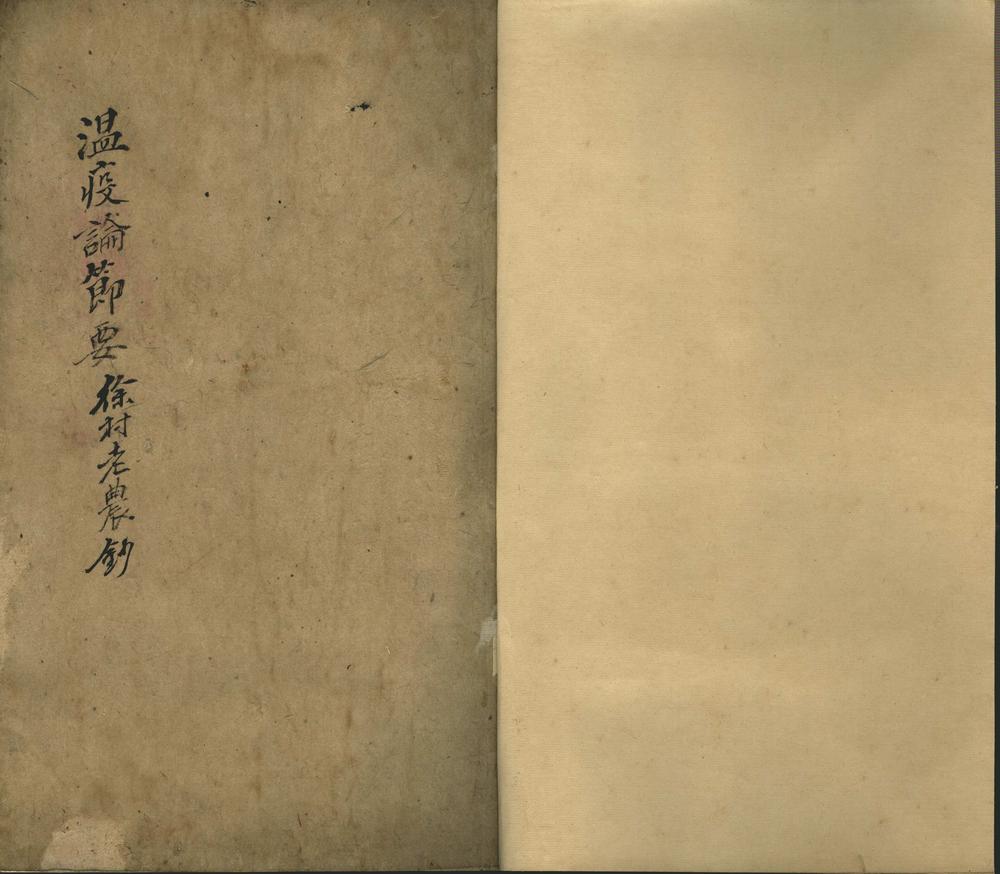 温疫論節要 徐村老農鈔